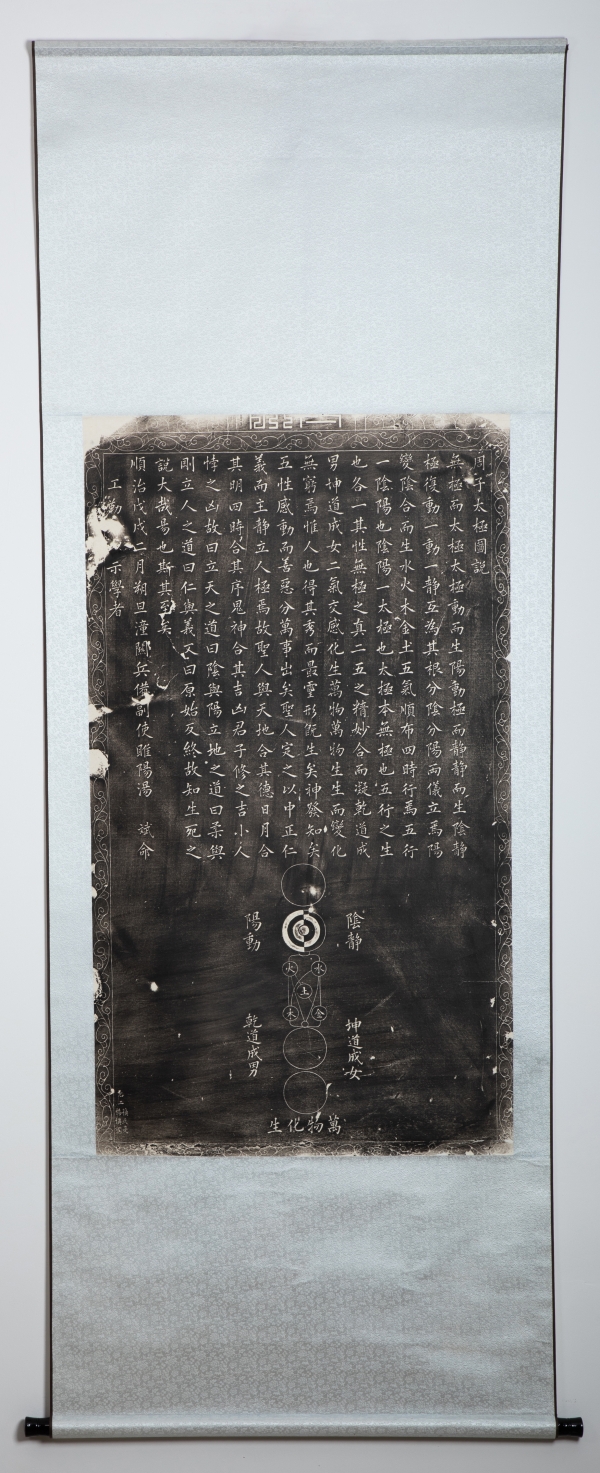 周子太極圖說
無極而太極太極動而生陽動極而靜靜而生陰靜
極復動一動一靜互為其根分陰分陽兩儀立焉陽
變陰合而生水火木金土五氣順布四時行焉五行
一陰陽也陰陽一太極也太極本無極也五行之生
也各一其性無極之真二五之精妙合而凝乾道成
男坤道成女二氣交感化生萬物萬物生生而變化
無窮焉惟人也得其秀而最靈形既生矣神發知矣
五性感動而善惡分萬事出矣聖人定之以中正仁
義而主靜立人極焉故聖人與天地合其德日月合
其明四時合其序鬼神合其吉凶君子修之吉小人
悖之凶故曰立天之道曰陰與陽立地之道曰柔與
剛立人之道曰仁與義又曰原始反終故知生死之
說大哉易也斯其至矣
順治戊戌二月朔旦潼關兵備副使睢陽湯 斌命
工勒 示學者
陰靜
陽動
水
火
土
金
木
坤道成女
乾道成男
萬物化生